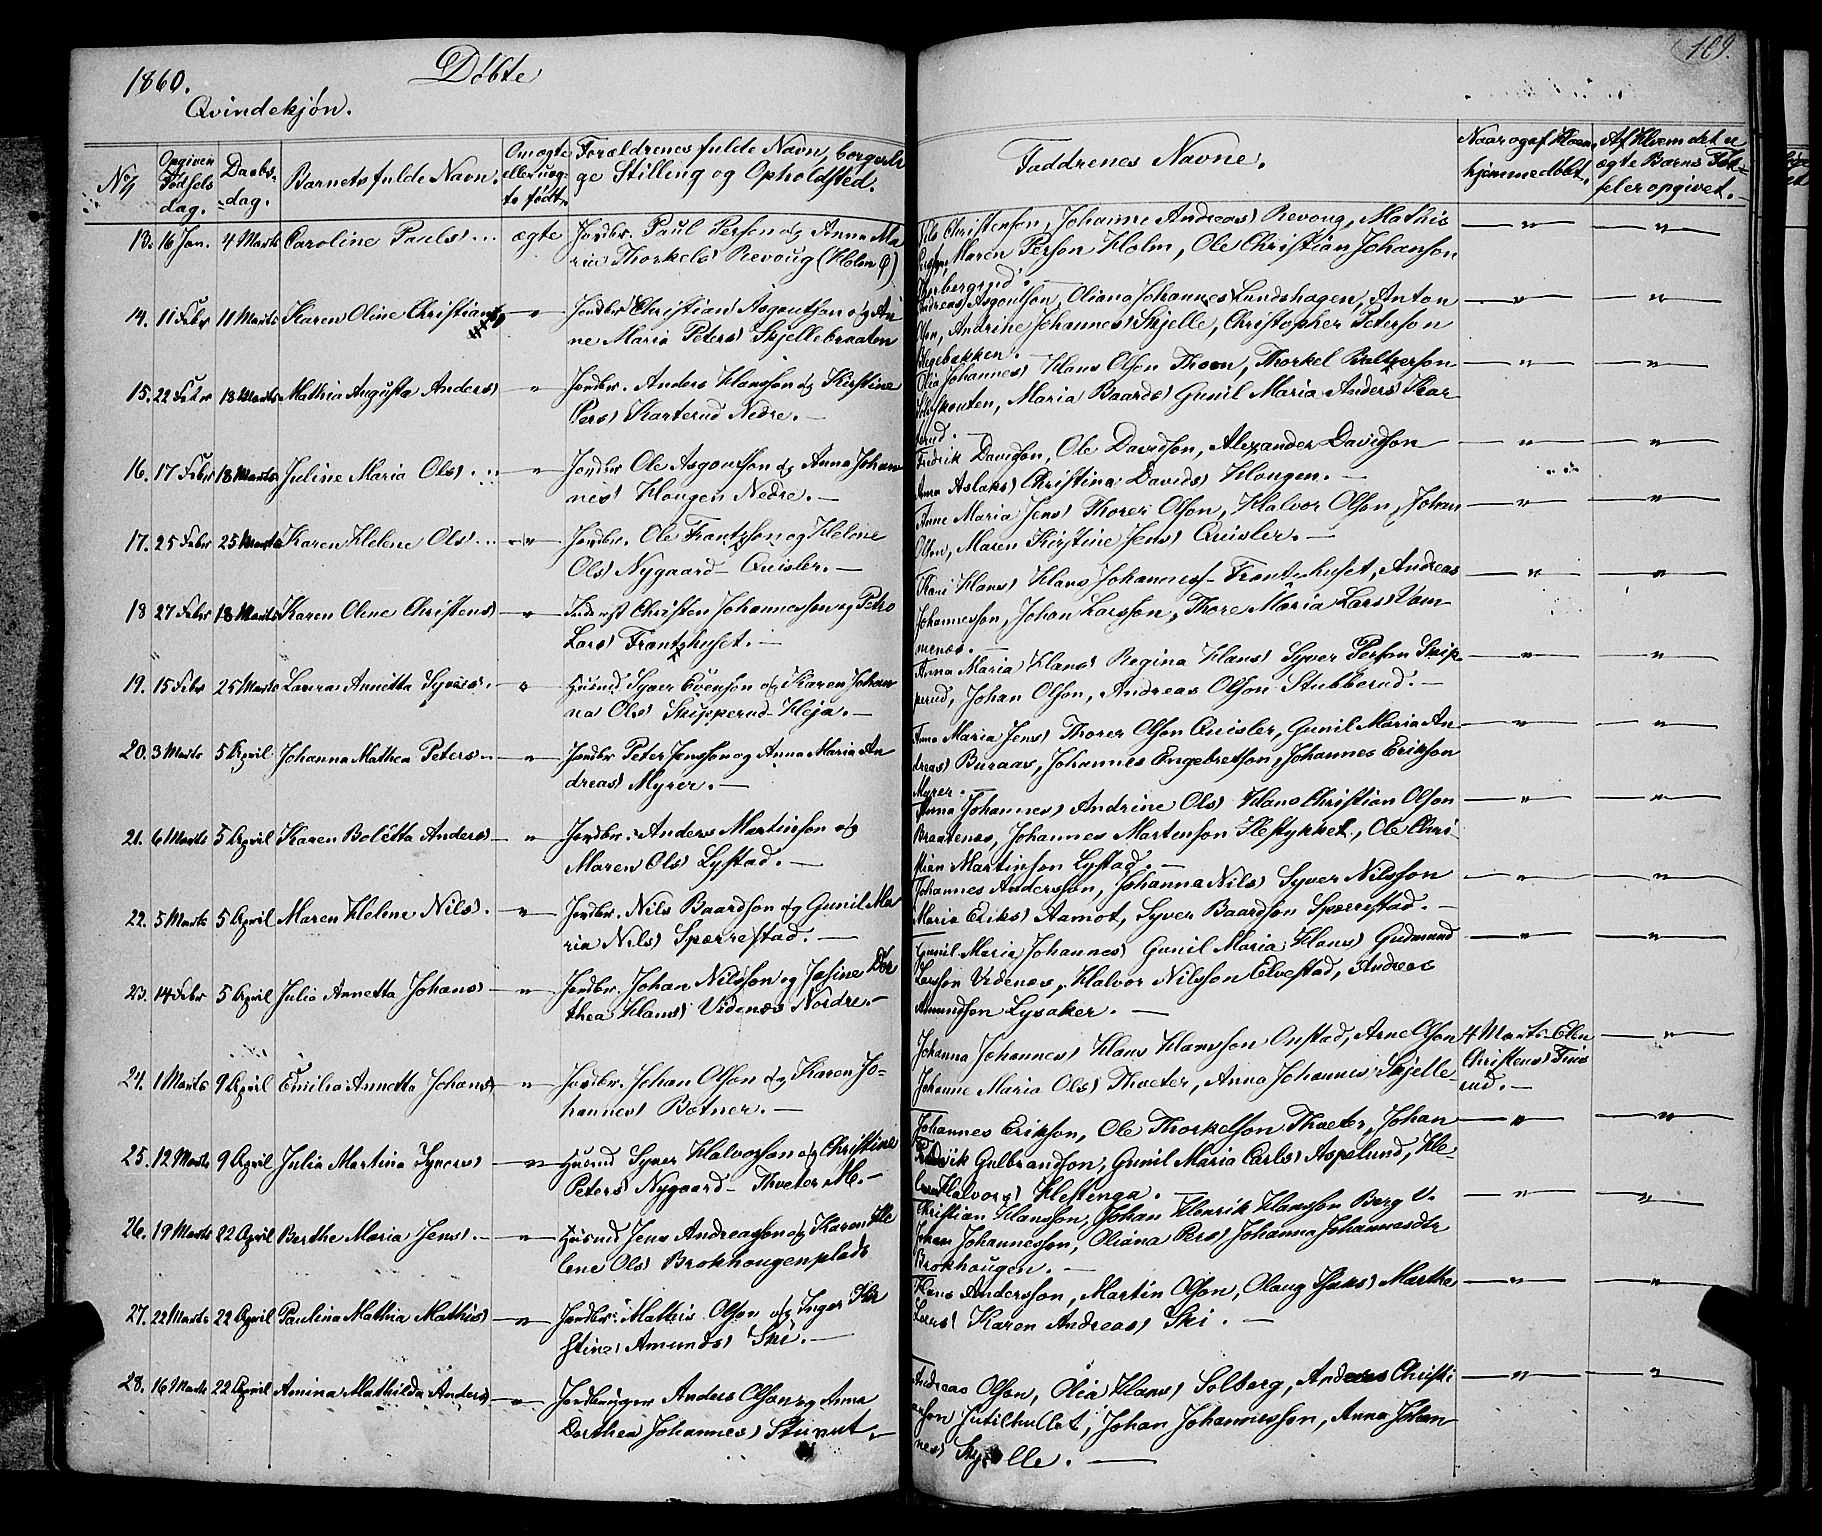 1860.
Døbte
109.
Qvindekjøn.
No/
Opgiven Fødsels dag.
Daabs-dag.
Barnets fulde Navn.
Om ægte eller uægte født.
Forældrenes fulde Navn, borgerlige Stilling og Opholdsted.
Faddrenes Navne.
Naar og af Hvem hjemmedøbt.
opgivet.
13. 16 Jan. 4 Marts Caroline Pauls ægte Jordbr. Paul Person og Anna Ma
ria Thorkels Revoug (Holm Ø)
Christenson, Johanne Andreas Revoug, Mathis
Maren Person Holm, Ole Christian Johanson
14. 11 Febr 11 Marts Karen Oline Christians " Jordbr Christian Asgoutson og An
ne Maria Peters Skjellebraaten
Andreas Asgoutson, Oliana Johannes Lundshagen, Anton
Olson, Andrine Johannes Skjelle, Christopher Peterson
Hegebakken.
15. 22 Febr 18 Marts Mathia Augusta Anders " Jordbr. Anders Hansson og Kirstine
Pers Karterud Nedre.
Olia Johannes Hans Olson Thoen, Thorkel Baltzerson
Maria Baards Gunil Maria Anders Kar
terud.
16. 17 Febr 18 Marts Juline Maria Ols " Jordbr Ole Asgoutson og Anna Johan
nes Hougen Nedre.
Fredrik Davidson, Ole Davidson, Alexander Davidson
Anna Aslaks Christina Davids Hougen.
17. 25 Febr 25 Marts Karen Helene Ols " Jordbr. Ole Frantzson og Helene
Ols Nygaard Quisler.
Anne Maria Jens Thorer Olson, Halvor Olson, Johan
Olson, Maren Kirstine Jens Quisler.
18 27 Febr 18 Marts Karen Oline Christens " Inderst Christen Johannesson og Petro
Lars Frantzhuset.
Kari Hans Hans Johannes Frantzhuset, Andreas
Johannesson, Johan Larsson, Thore Maria Lars Vam
menæs.
19. 15 Febr 25 Marts Laura Annette Syvers " Husmd Syver Evenson og Karen Johan
na Ols Skipperud Heja.
Anna Maria Hans Regina Hans Syver Person Skip
perud, Johan Olson, Andreas Olson Stubberud.
20. 3 Marts 5 April Johanna Mathea Peters " Jordbr Peter Jensson og Anna Maria An
dreas Myrer.
Anna Maria Jens Thorer Olson Quisler, Gunil Maria An
dreas Buraas, Johannes Engebretson, Johannes Erikson
Myrer.
21. 6 Marts 5 April Karen Bolette Anders " Jordbr. Anders Martinson og
Maren Ols Lystad.
Anna Johannes Andrine Ols Hans Christian Olson
Braatenes, Johannes Martenson Hestykket, Ole Chri
stian Martinson Lystad.
22. 5 Marts 5 April Maren Helene Nils " Jordbr. Nils Baardson og Gunil Ma
ria Nils Spærrestad.
Johannes Andersson, Johanna Nils Syver Nilsson
Maria Eriks Aamot, Syver Baardson Spærrestad.
23. 14 Febr 5 April Julia Annetta Johans " Jordbr. Johan Nilsson og Josine Dor
thea Hans Videnæs Nordre.
Gunil Maria Johannes Gunil Maria Hans Gudmund
Larsson Videnæs, Halvor Nilsson Elvestad, Andreas
Amundson Lysaker.
24. 1 Marts 9 April Emilia Annetta Johans " Jordbr. Johan Olson og Karen Jo-
hannes Botner.
Johanna Johannes Hans Hansson Onstad, Arne Olson
Johanne Maria Ols Thveter, Anna Johannes Skjelle-
rud.
4 Marts Ellen
Christens
25. 12 Marts 9 April Julia Martina Syvers " Husmd Syver Halvorson og Christine
Peters Nygaard Thveter M.
Johannes Erikson, Ole Thorkelson Thveter, Johan
Fredrik Gulbrandson, Gunil Maria Carls Aspelund, He-
lene Halvors Hestenga.
26. 19 Marts 22 April Berthe Maria Jens " Husmd Jens Andreasson og Karen He
lene Ols Brokhougenplads
Christian Hansson, Johan Henrik Hansson Berg V.
Johan Johannesson, Oliana Pers Johanna Johannesdtr
Brokhougen.
27. 22 Marts 22 April Paulina Mathia Mathis " Jordbr. Mathis Olson og Inger Kir
stine Amunds Ski.
Hans Andersson, Martin Olson, Olaug Isaks Marthe
Lars Karen Andreas Ski.
28. 16 Marts 22 April Amina Mathilda Anders " Jordbruger Anders Olson og Anna
Dorthea Johannes Stunut.
Andreas Olson, Olia Hans Solberg, Andreas Christi
anson Jutilhullet, Johan Johannesson, Anna Johan
nes Skjelle.